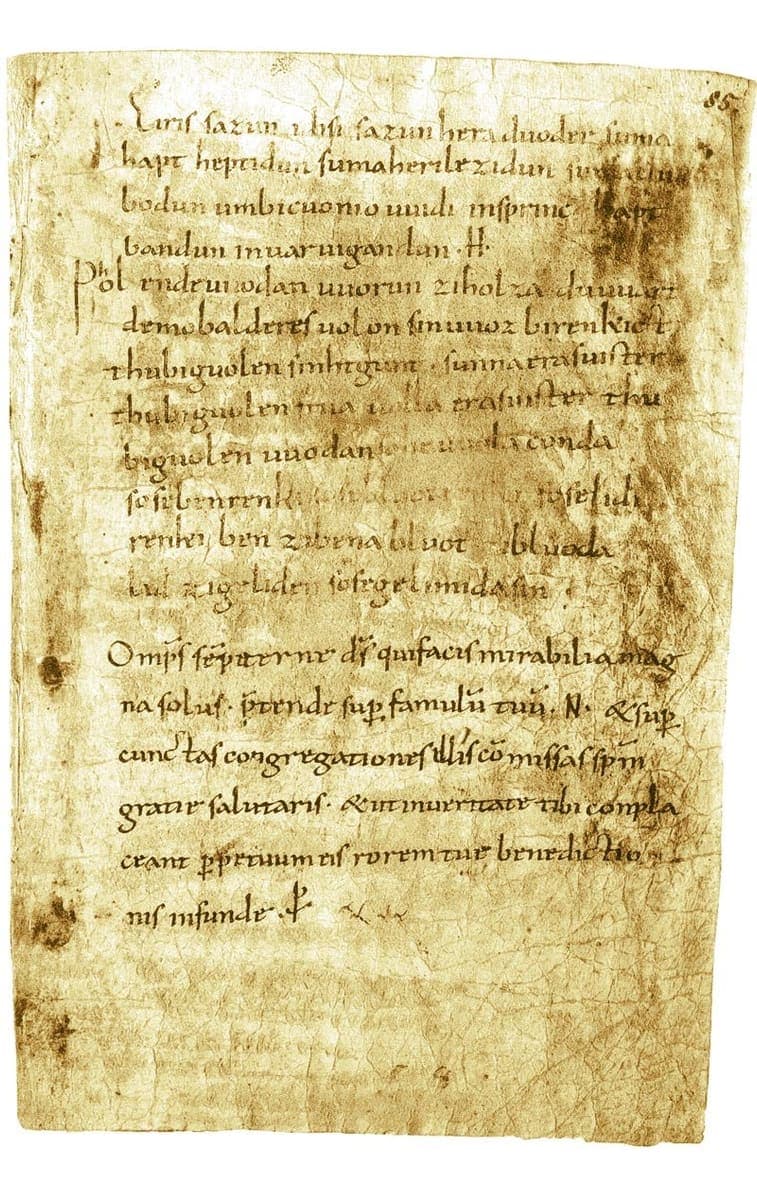 85
Eiris sazun idisi sazun hera duoder suma
hapt heptidun suma heri lezidun suma
bodun umbicuonio uuidi insprinc hapt
bandun inuar uigandun ·H·
Phol ende uuodan uuorun ziholza du uuart
demobalderes uolon sinuuoz birenkict
thubiguolen sinhtgunt · sunna era suister
thubiguolen friia uolla era suister thu
biguolen uuodan sohe uuola conda
sose benrenki sose bluotrenki soselidi
renki ben zibena bluot zibluoda
lid zigeliden sosegelimida sin
Omp̄s sēpiterne d̄s quifacis mirabilia mag
na solus · p̄tende sup famulū tuū · N · &sup
cunctas congregationes illis cōmissas sp̄m
gratie salutaris · &ut inueritate tibi conpla
ceant p̱petuum eis rorem tue benedictio
nis infunde · ꝑ